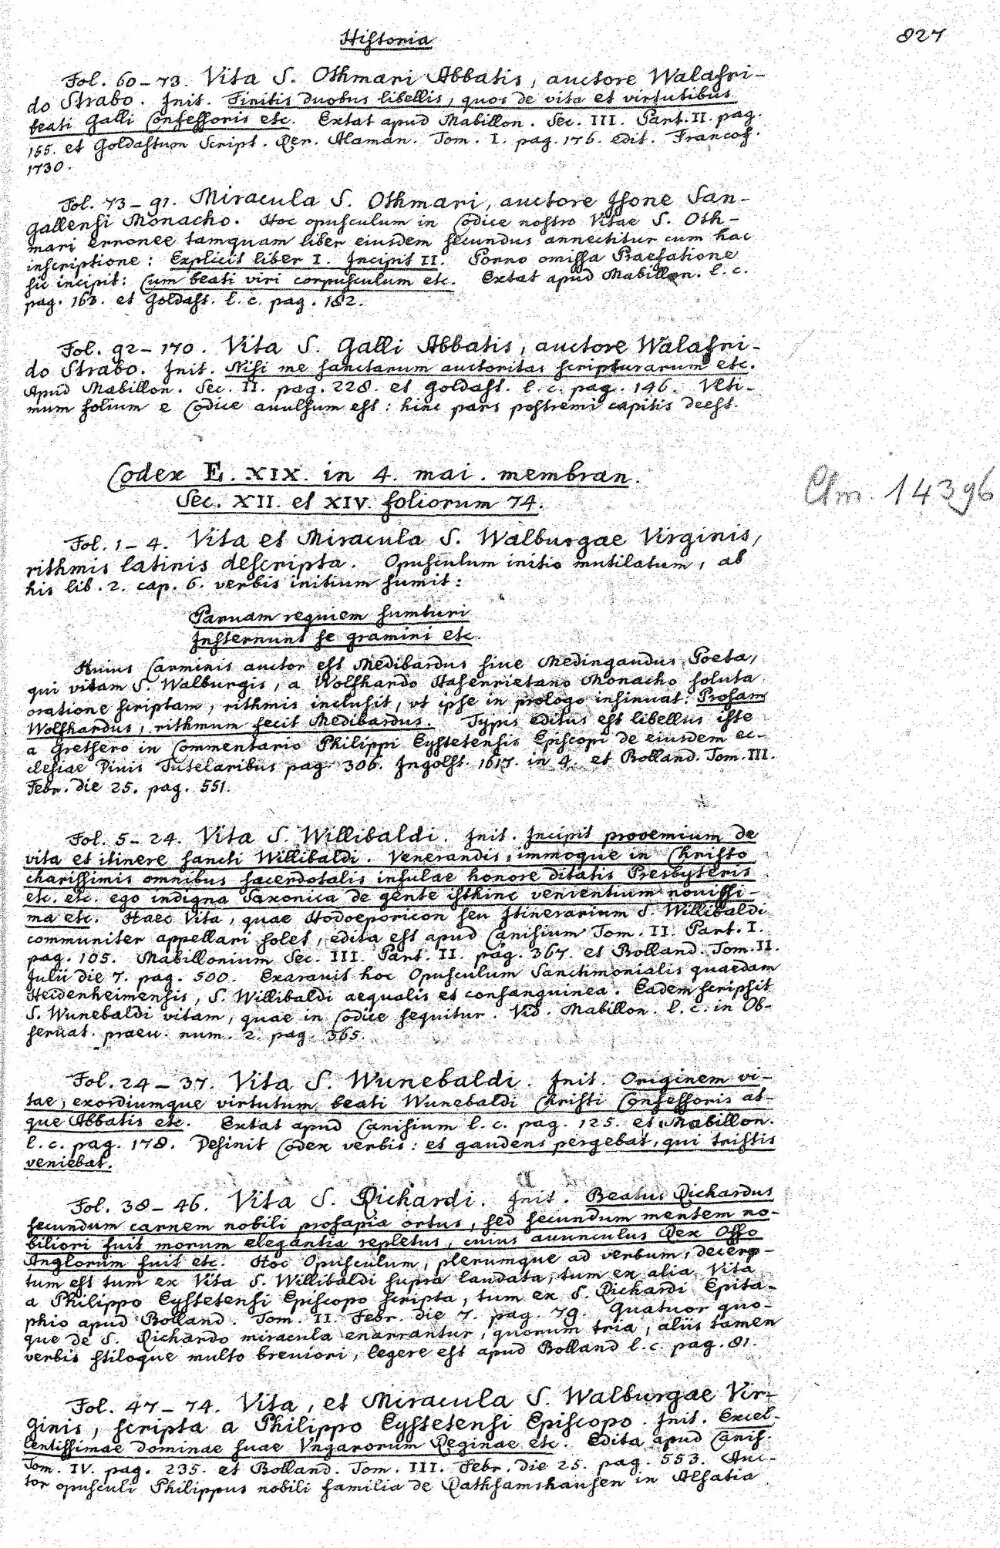 Historia
827
Fol. 60-73. Vita S. Othmari Abbatis, auctore Walafri-
do Strabo. Init. Finitis duobus libellis, quos de vita et virtutibus
beati Galli Confessoris etc. Extat apud Mabillon. Sec. III. Part. II. pag.
155. et Goldastum Script. Rer. Alaman. Tom. I. pag. 176. edit. Francof.
1730.
Fol. 73-91. Miracula S. Othmari, auctore Isone San-
gallensi Monacho. Hoc opusculum in Codice nostro Vitae S. Oth-
mari erronee tamquam liber eiusdem secundus annectitur cum hac
inscriptione: Explicit liber I. Incipit II. Porro omissa Praefatione
sic incipit: Cum beati viri corpusculum etc. Extat apud Mabillon. l. c.
pag. 163. et Goldast. l. c. pag. 182.
Fol. 92-170. Vita S. Galli Abbatis, auctore Walafri-
do Strabo. Init. Nisi me sanctarum auctoritas scripturarum etc.
Apud Mabillon. Sec. II. pag. 228. et Goldast. l. c. pag. 146. Ulti-
mum folium e Codice avulsum est: hinc pars postremi capitis deest.
Codex E. XIX. in 4. mai. membran.
Sec. XII. et XIV. foliorum 74.
Clm. 14396
Fol. 1-4. Vita et Miracula S. Walburgae Virginis,
rithmis latinis descripta. Opusculum initio mutilatum, ab
his lib. 2. cap. 6. verbis initium sumit:
Parvam requiem sumturi
Insternunt se gramini etc.
Huius Carminis auctor est Medibardus sive Medingaudus Poeta,
qui vitam S. Walburgis, a Wolfhardo Hasenrietano Monacho soluta
oratione scriptam, rithmis inclusit, ut ipse in prologo insinuat: Prosam
Wolfhardus, rithmum fecit Medibardus. Typis editus est libellus iste
a Gretsero in Commentario Philippi Eystetensis Episcopi de eiusdem ec-
clesiae Divis Tutelaribus pag. 306. Ingolst. 1617. in 4. et Bolland. Tom. III.
Febr. die 25. pag. 551.
Fol. 5-24. Vita S. Willibaldi. Init. Incipit prooemium de
vita et itinere sancti Willibaldi. Venerandis, immoque in Christo
charissimis omnibus sacerdotalis infulae honore ditatis Presbyteris
etc. etc. ego indigna Saxonica de gente isthinc venientium novissi-
ma etc. Haec Vita, quae Hodoeporicon seu Itinerarium S. Willibaldi
communiter appellari solet, edita est apud Canisium Tom. II. Part. I.
pag. 105. Mabillonium Sec. III. Part. II. pag. 367. et Bolland. Tom. II.
Julii die 7. pag. 500. Exaravit hoc Opusculum Sanctimonialis quaedam
Heidenheimensis, S. Willibaldi aequalis et consanguinea. Eadem scripsit
S. Wunebaldi vitam, quae in Codice sequitur. Vid. Mabillon. l. c. in Ob-
servat. praev. num. 2. pag. 365.
Fol. 24-37. Vita S. Wunebaldi. Init. Originem vi-
tae, exordiumque virtutum beati Wunebaldi Christi Confessoris at-
que Abbatis etc. Extat apud Canisium l. c. pag. 125. et Mabillon.
l. c. pag. 178. Desinit Codex verbis: et gaudens pergebat, qui tristis
veniebat.
Fol. 38-46. Vita S. Richardi. Init. Beatus Richardus
secundum carnem nobili prosapia ortus, sed secundum mentem no-
biliori fuit morum elegantia repletus, cuius avunculus Rex Offo
Anglorum fuit etc. Hoc Opusculum, plerumque ad verbum, decerp-
tum est tum ex Vita S. Willibaldi supra laudata, tum ex alia Vita
a Philippo Eystetensi Episcopo scripta, tum ex S. Richardi Epita-
phio apud Bolland. Tom. II. Febr. die 7. pag. 79. Quatuor quo-
que de S. Richardo miracula enarrantur, quorum tria, aliis tamen
verbis stiloque multo breviori, legere est apud Bolland l. c. pag. 81.
Fol. 47-74. Vita, et Miracula S. Walburgae Vir-
ginis, scripta a Philippo Eystetensi Episcopo. Init. Excel-
lentissimae dominae suae Vngarorum Reginae etc. Edita apud Canis.
Tom. IV. pag. 235. et Bolland. Tom. III. Febr. die 25. pag. 553. Auc-
tor opusculi Philippus nobili familia de Rathsamshausen in Alsatia